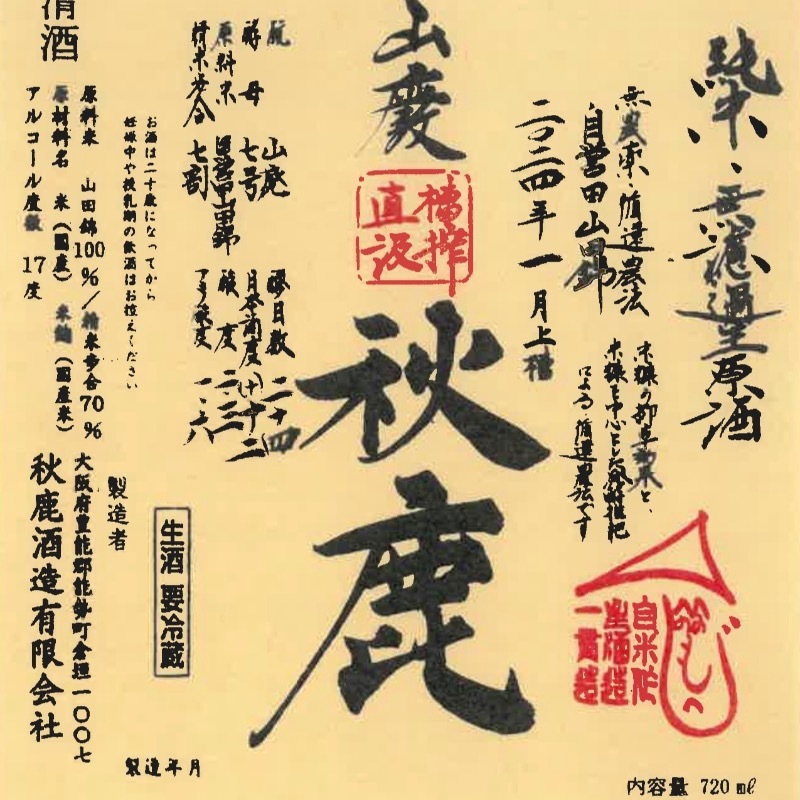 純米・無濾過生原酒
無農薬・循環農法
自営田山田錦
二〇二四年一月上槽
米糠を中心とした発酵堆肥
による循環農法です
山廃
槽搾
直汲
秋鹿
酛 山廃
酵母 七号
原料米 自営田山田錦
精米歩合 七割
醪日数 二十四
日本酒度 (+)十二
酸度 二・三
アミノ酸度 一・六
お酒は二十歳になってから
妊娠中や授乳期の飲酒はお控えください
清酒
原料米 山田錦100%/精米歩合70%
原材料名 米(国産) 米麹(国産米)
アルコール度数 17度
製造者
大阪府豊能郡能勢町倉垣一〇〇七
秋鹿酒造有限会社
生酒 要冷蔵
製造年月
一貫造
内容量 720㎖